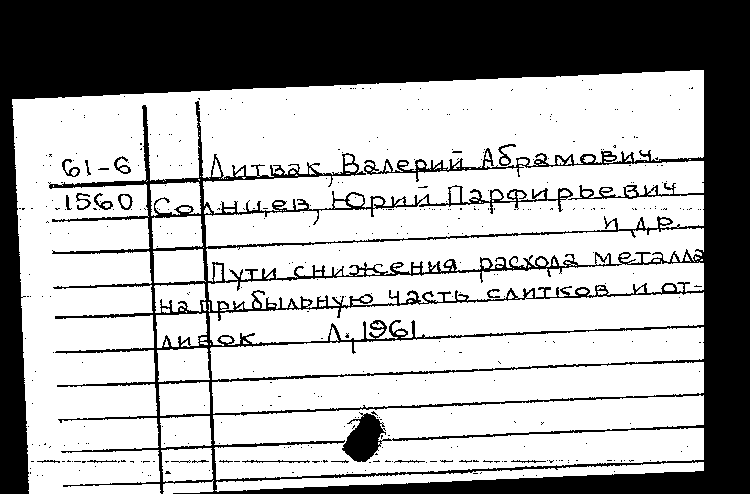 61-6 Литвак, Валерий Абрамович.
1560 Солнцев, Юрий Парфирьевич
и др.
Пути снижения расхода металла
на прибыльную часть слитков и от-
ливок. Л., 1961.